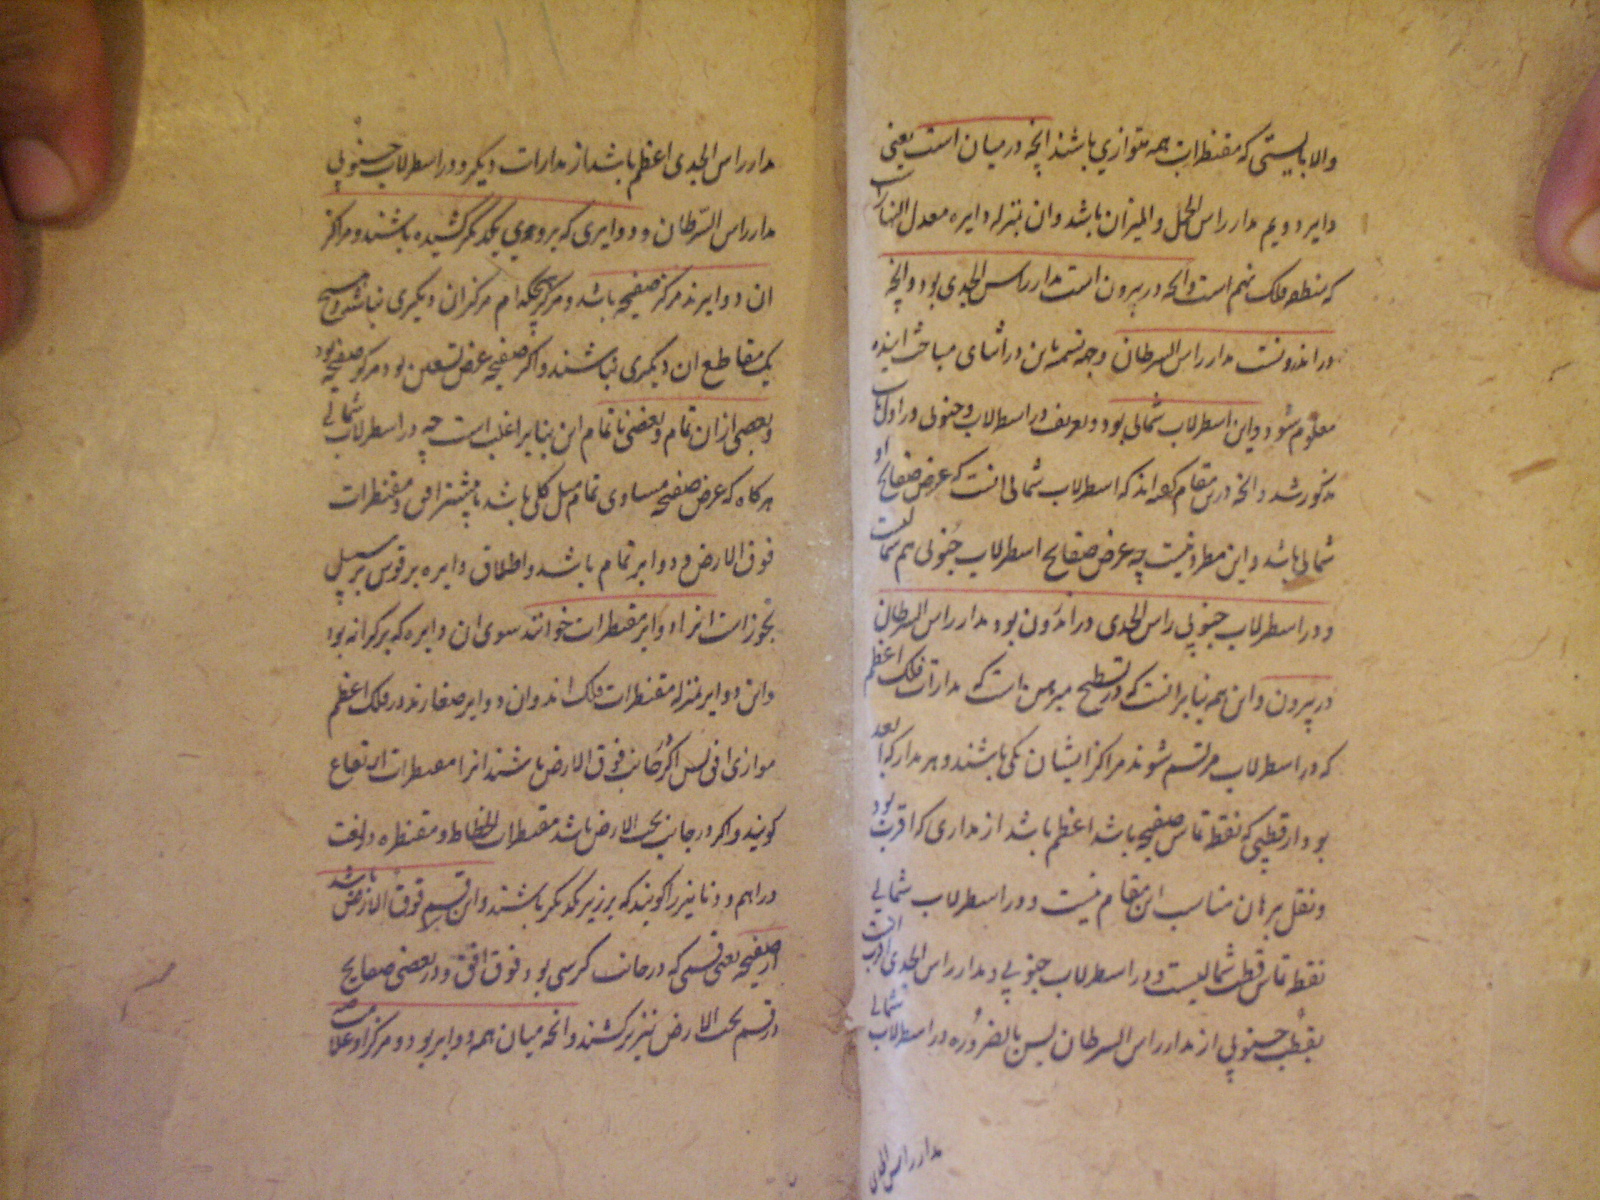 والا بایستی که مقنطرات همه متوازی باشند انچه در میان است یعنی
دایره دویم مدار راس الحمل و المیزان باشد وان بمنزله دایره معدل النهار است
که منطقه فلک نهم است وانچه در بیرون است مدار راس الجدی بود وانچه
در اندرونست مدار راس السرطان وجه تسمیه باین در اثنای مباحث اینده
معلوم شود واین اسطرلاب شمالی بود وتعریف اسطرلاب جنوبی در اول باب
مذکور شد وانچه درین مقام گفته اند که اسطرلاب شمالی انست که عرض صفایح او
شمالی باشد واین مطرد نیست چه عرض صفایح اسطرلاب جنوبی هم شمالیست
ودر اسطرلاب جنوبی راس الجدی در اندرون بود مدار راس السرطان
در بیرون واین همه بنابر انست که در تسطیح مبرهن است که مدارات فلک اعظم
که در اسطرلاب مرتسم شوند مراکز ایشان یکی باشند وهر مدار که ابعد
بود از قطبی که نقطه تماس صفیحه باشد اعظم باشد از مداری که اقرب بود
ونقل برهان مناسب این مقام نیست ودر اسطرلاب شمالی
نقطه تماس قطب شمالیست ودر اسطرلاب جنوبی ومدار راس الجدی اقرب است
بقطب جنوبی از مدار راس السرطان پس بالضروره در اسطرلاب شمالی
مدار راس الجدی
مدار راس الجدی اعظم باشد از مدارات دیگر ودر اسطرلاب جنوبی
مدار راس السرطان ودوایری که بر وی یکدیگر کشیده باشند ومراکز
ان دوایر نه مرکز صفیحه باشد ومرکز هیچکدام مرکز ان دیگری نباشد وهیچ
یک مقاطع ان دیگری نباشند واگر صفیحه عرض تسعین بود مرکز صفیحه بود
وبعضی از ان تمام وبعضی ناتمام این بنابر اغلب است چه در اسطرلاب شمالی
هرگاه که عرض صفیحه مساوی تمام میل کلی باشد یا بیشتر افق ومقنطرات
فوق الارض دوایر تمام باشد واطلاق دایره بر قوس بر سبیل
تجوز است انرا دوایر مقنطرات خوانند سوی ان دایره که بر کرانه بود
واین دوایر بمنزله مقنطرات فلک اند وان دوایر صغارند در فلک اعظم
موازی افق پس اگر در جانب فوق الارض باشند انرا مقنطرات ارتفاع
گویند واگر در جانب تحت الارض باشد مقنطرات انحطاط ومقنطره در لغت
دراهم ودنانیر را گویند که بر زبر یکدیگر باشند واین قسم فوق الارض باشد
از صفیحه یعنی قسمی که در جانب کرسی بود فوق افق ودر بعضی صفایح
در قسم تحت الارض نیز بر کشند وانچه میان همه دوایر بود ومرکز او علامت